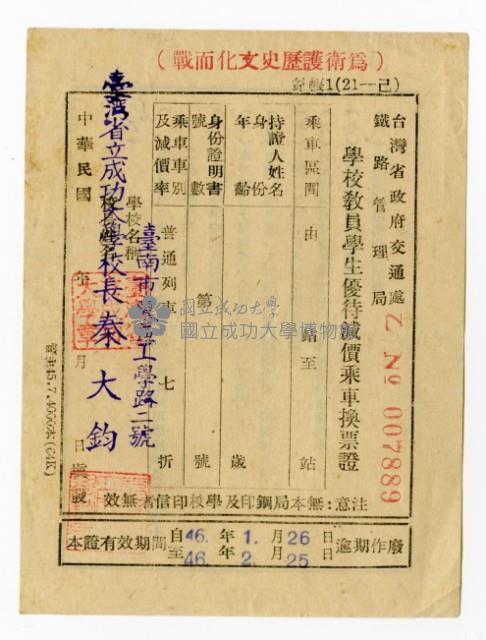 (為衛護歷史文化而戰)
記帳1(21—己)
台灣省政府交通處
鐵路管理局
學校教員學生優待減價乘車換票證
2 № 007889
乘車區間 由 站至 站
持證人姓名
身份
年齡 歲
身份證明書號數 第 號
乘車車別及減價率 普通列車 七折
學校名稱
臺南市 工學路二號
臺灣省立成功大學校長秦大鈞
中華民國 年 月 日填發
注意:無本局鋼印及學校印信者無效
本證有效期間 自46.年1.月26日 逾期作廢
至46.年2.月25日
國立成功大學
國立成功大學博物館